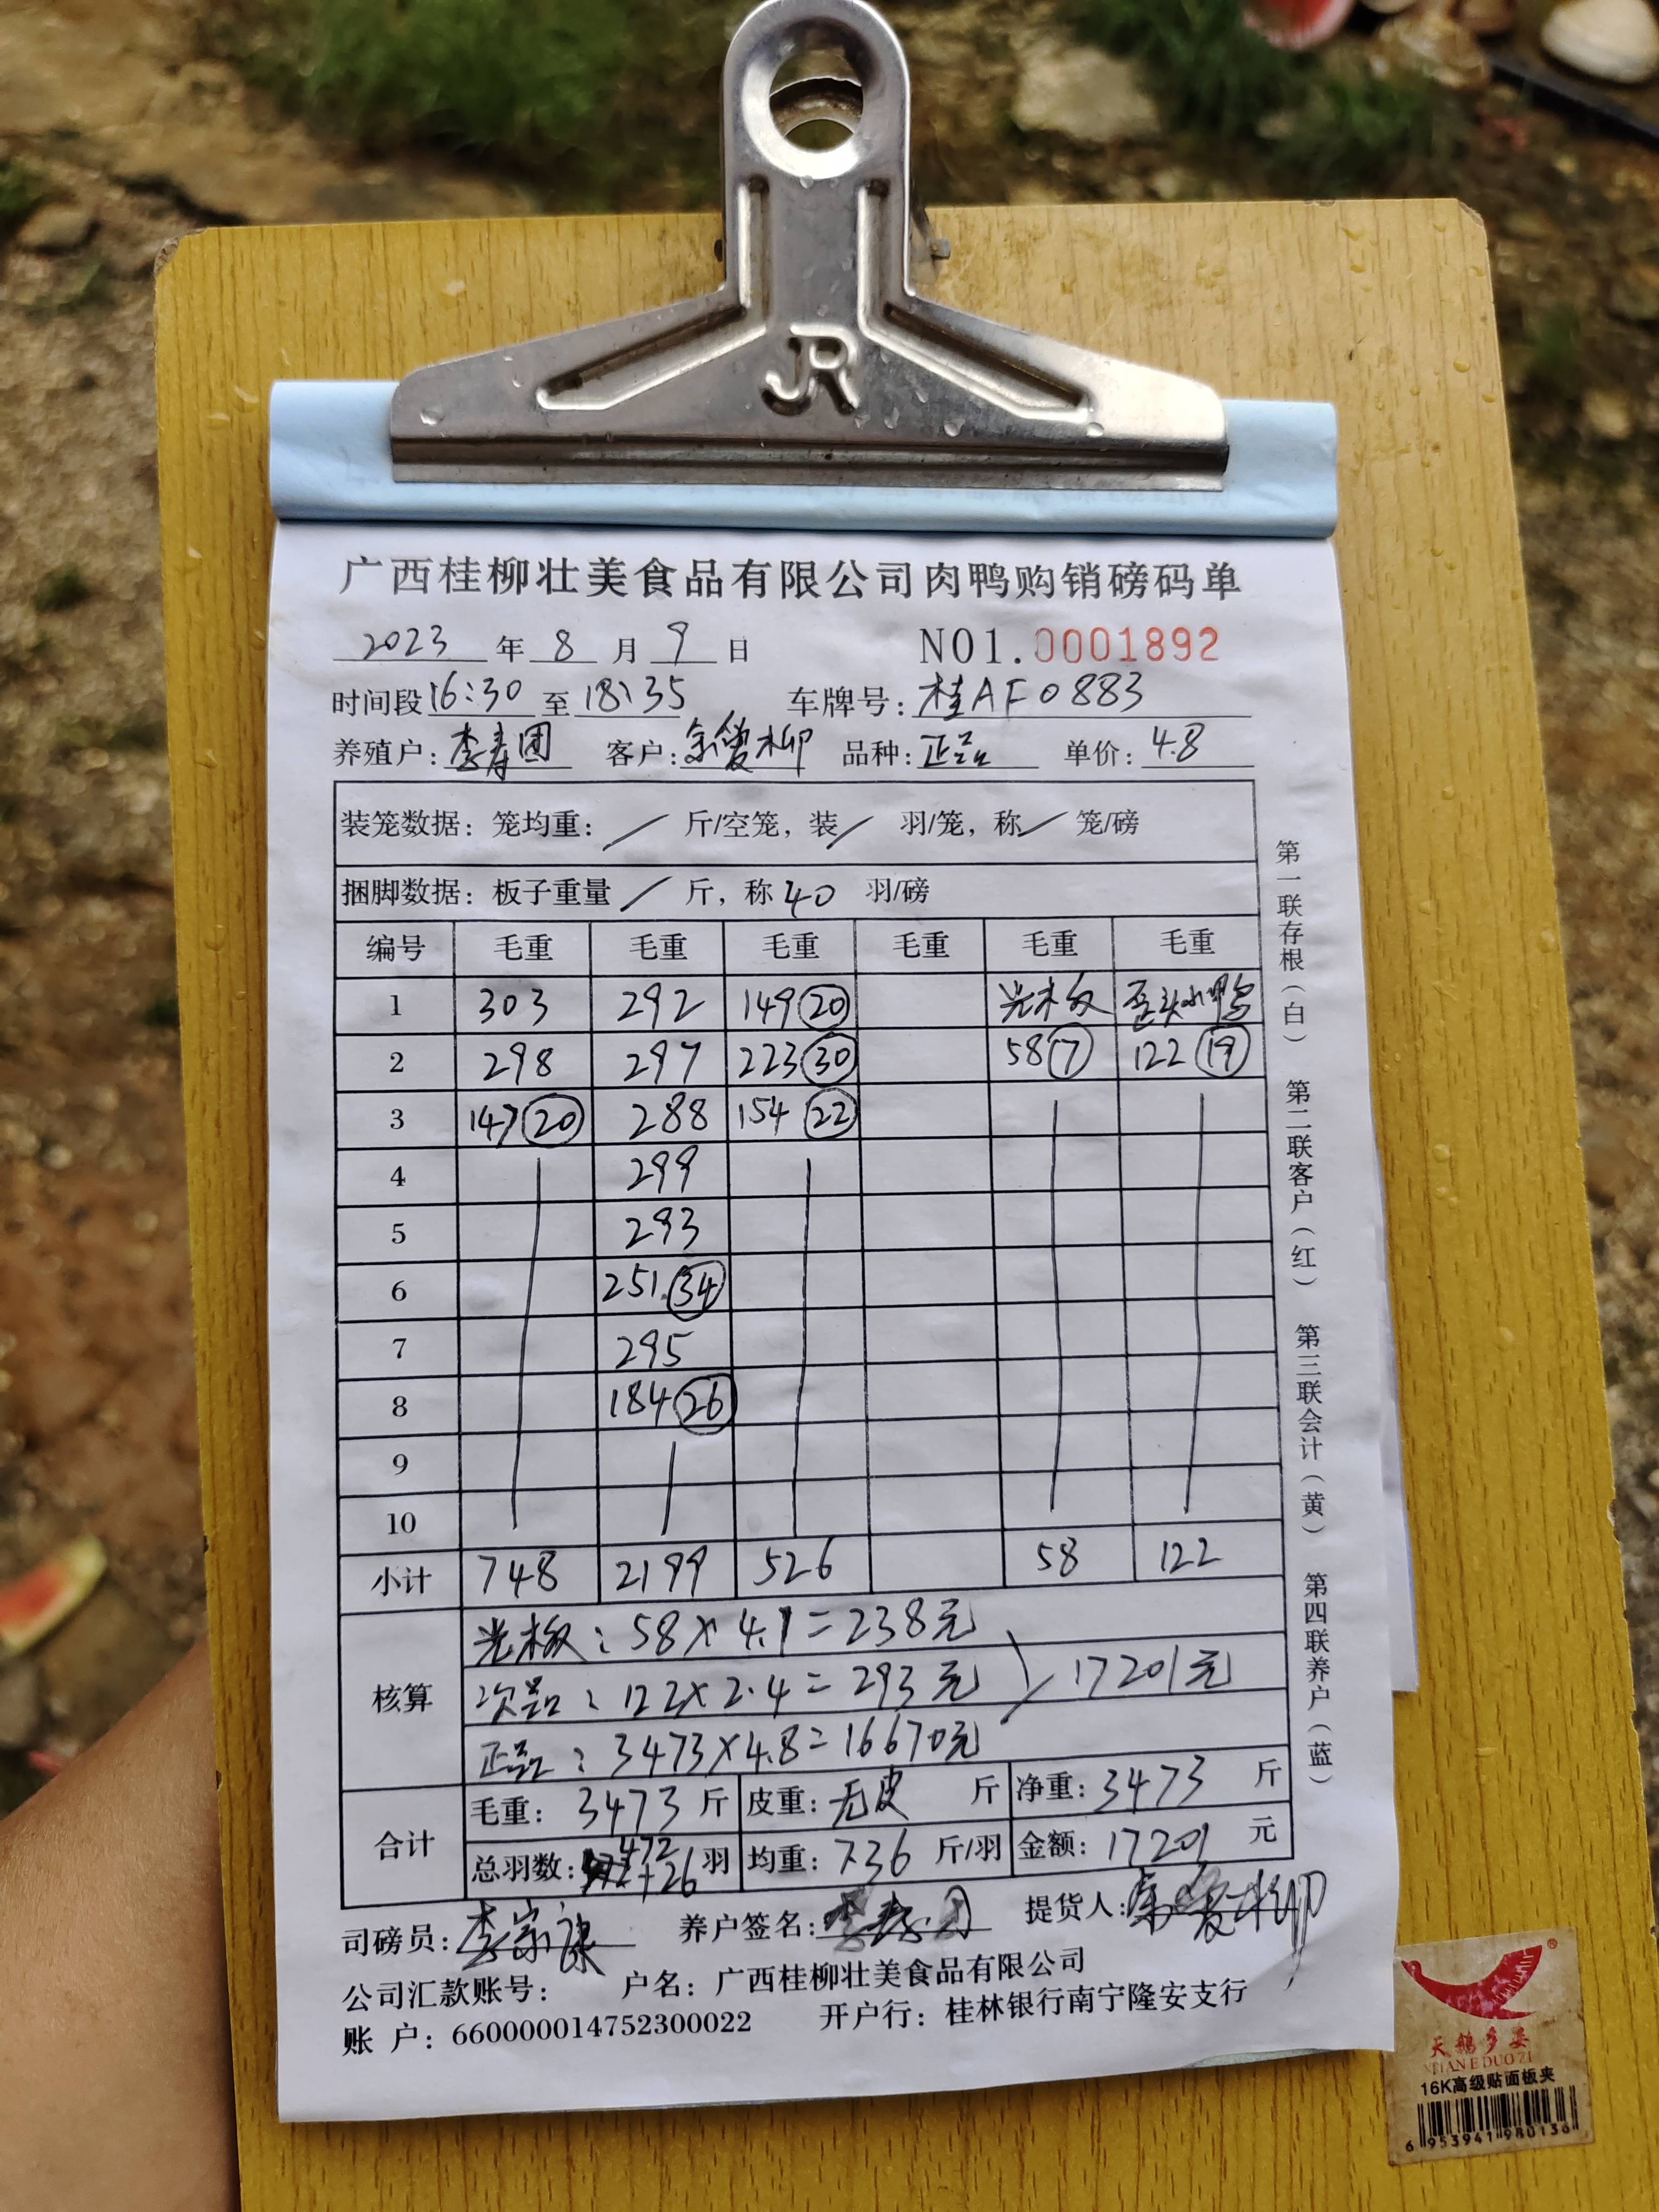 JR
广西桂柳壮美食品有限公司肉鸭购销磅码单
2023 年 8 月 9 日 NO1.0001892
时间段 16:30 至 18:35 车牌号: 桂AF0883
养殖户: 李寿团 客户: 余爱柳 品种: 正品 单价: 4.8
装笼数据: 笼均重: / 斤/空笼, 装 / 羽/笼, 称 / 笼/磅
捆脚数据: 板子重量 / 斤, 称 40 羽/磅
编号 毛重 毛重 毛重 毛重 毛重 毛重
1 303 292 149 20 光木板 歪头小鸭
2 298 297 223 30 58 7 122 19
3 147 20 288 154 22
4 299
5 293
6 251 34
7 295
8 184 26
9
10
小计 748 2199 526 58 122
核算
光木板: 58×4.1=238元
次品: 122×2.4=293元 17201元
正品: 3473×4.8=16670元
合计
毛重: 3473 斤 皮重: 无皮 斤 净重: 3473 斤
总羽数: 472+26 羽 均重: 7.36 斤/羽 金额: 17201 元
司磅员: 李 养户签名: 李寿团 提货人: 余爱柳
公司汇款账号: 户名: 广西桂柳壮美食品有限公司
账 户: 660000014752300022 开户行: 桂林银行南宁隆安支行
第一联存根(白) 第二联客户(红) 第三联会计(黄) 第四联养户(蓝)
®
天鹅多姿
TIAN E DUO ZI
16K高级贴面板夹
6 953941 980136